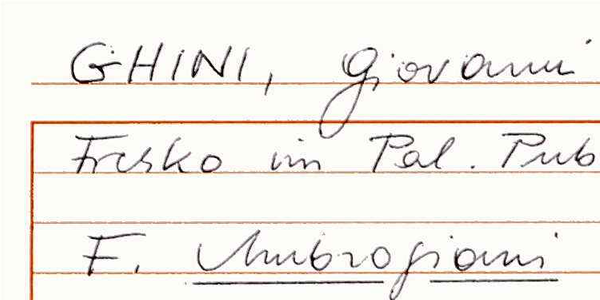 GHINI, Giovanni
Fresko im Pal. Pub
F. Ambrogiani